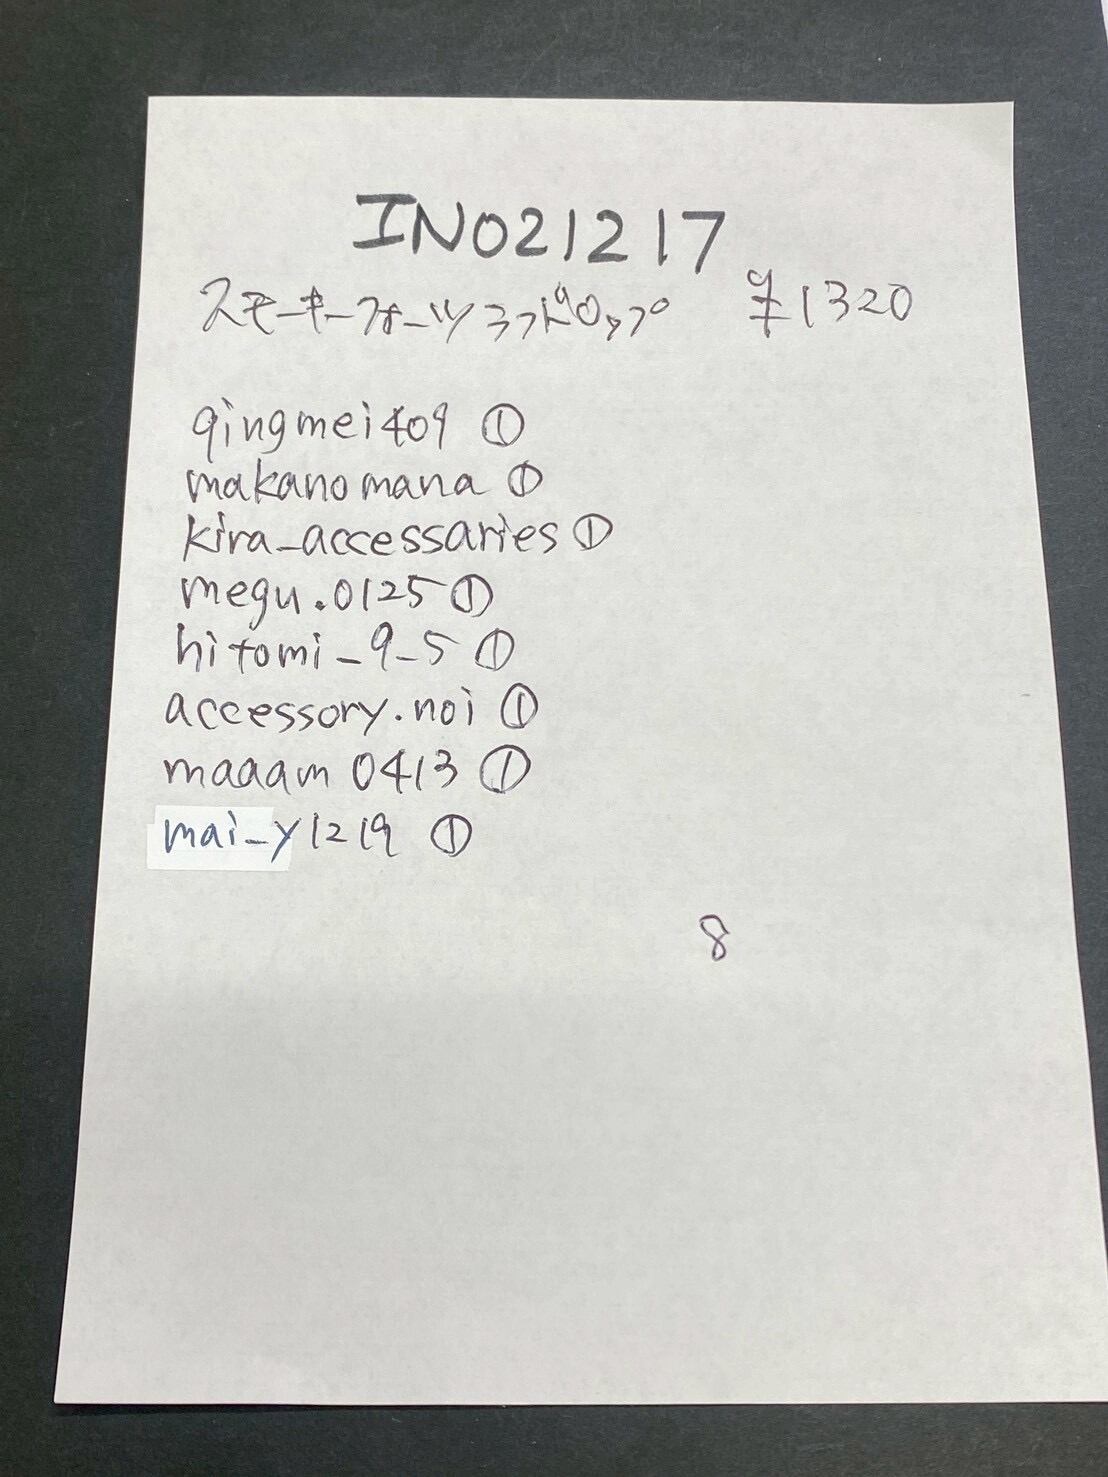 INO21217
スモーキークォーツラフドロップ ¥1320
qingmei409 ①
makanomana ①
kira_accessaries ①
megu.0125 ①
hitomi_9_5 ①
accessory.noi ①
maaam0413 ①
mai_y1219 ①
8